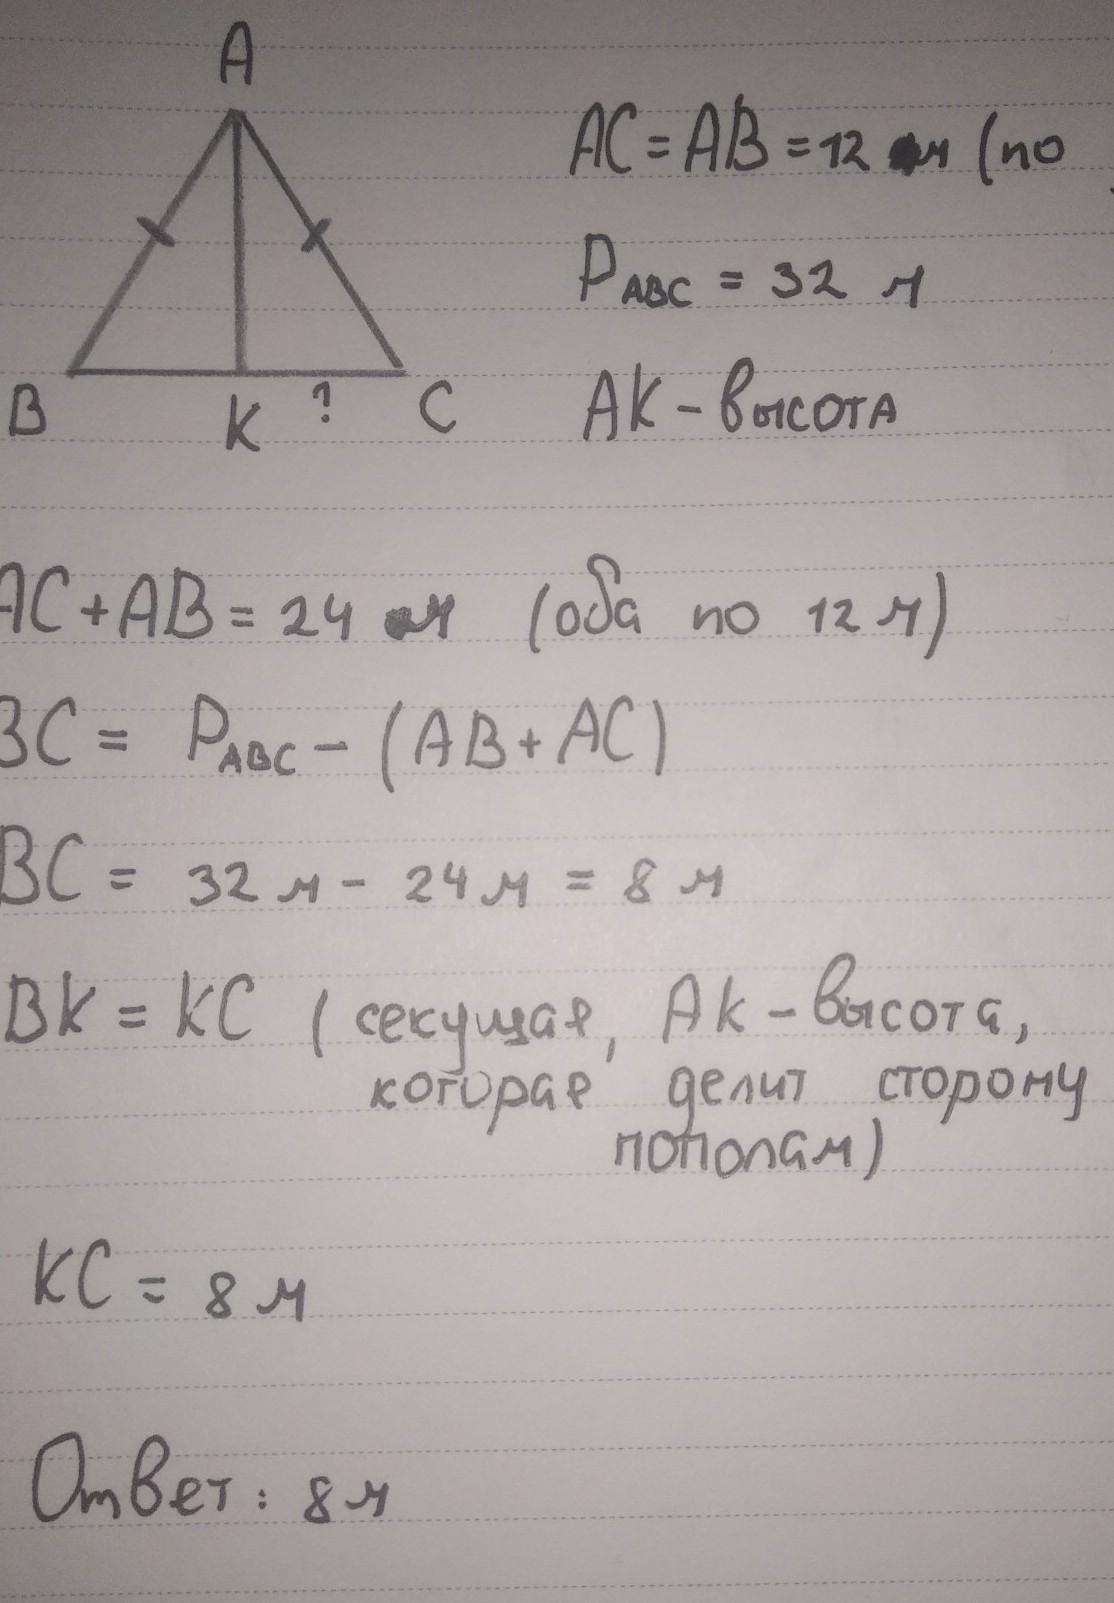 A
B
K
?
C
AC = AB = 12 м (по
P ABC = 32 м
AK - высота
AC + AB = 24 м (оба по 12 м)
BC = P ABC - (AB + AC)
BC = 32 м - 24 м = 8 м
BK = KC ( секущая, AK - высота,
которая делит сторону
пополам)
KC = 8 м
Ответ: 8 м